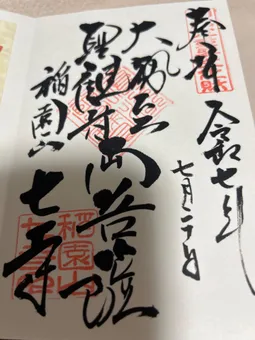 奉拝
令和七年
七月二十日
大勢至
聖観音両菩薩
稲園山 七寺
稲園山